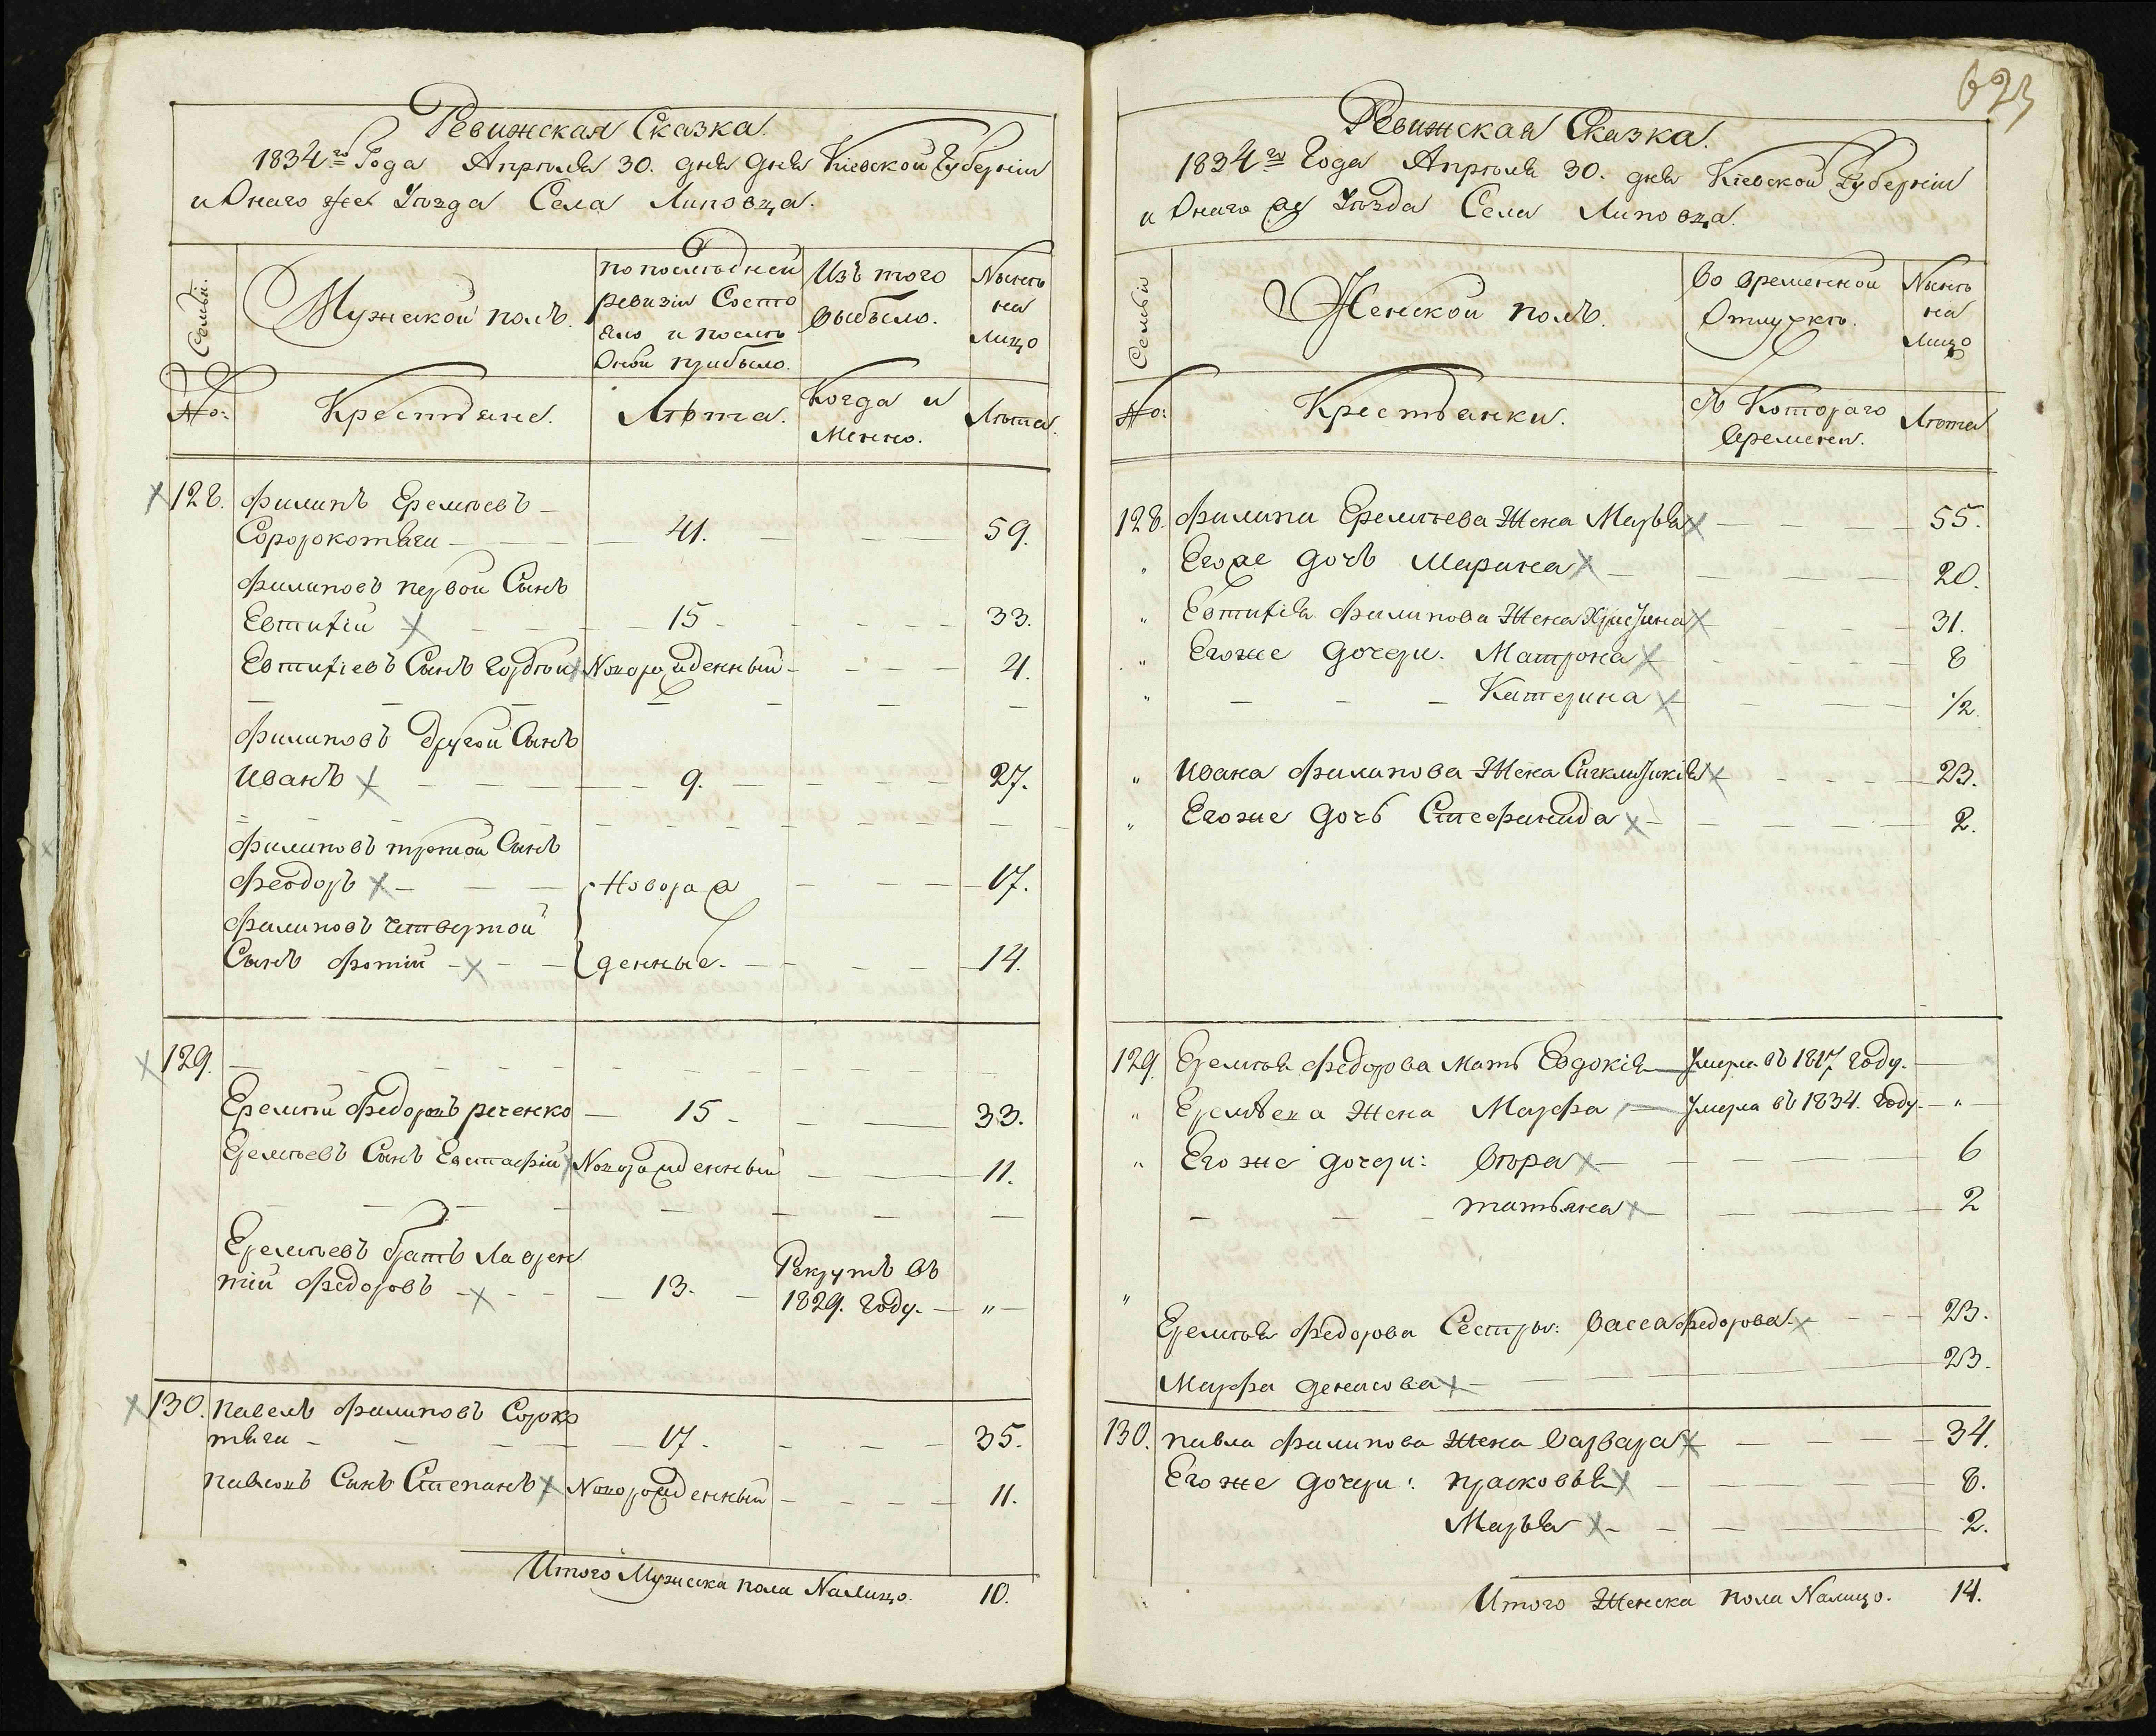 Ревижская Сказка.
1834го Года Апрѣля 30. дня дня Кіевской Губерніи
и Онаго же Уѣзда Села Липовца.
Семьи.
Мужеской полъ.
По последней
ревизіи Состо
яло и послѣ
Оной прибыло.
Изъ того
выбыло.
Нынѣ
на
лицо
№:
Крестьяне.
Лѣта.
Когда и
Менно.
Лѣта.
128. Филипъ Еремѣевъ
Соророкотяги 41. 59.
Филиповъ первой Сынъ
Евтифій 15 33.
Евтифіевъ Сынъ Гордѣй Новорожденный 4.
Филиповъ Другой Сынъ
Иванъ 9. 27.
Филиповъ третой Сынъ
Феодоръ Новорож 17.
Филиповъ Четвертой
Сынъ Фотій денные. 14.
129.
Еремѣй Федоровъ реченко 15 33.
Еремѣевъ Сынъ Евстафій Новорожденный 11.
Еремѣевъ братъ Лаврен
тій Федоровъ 13. Рекрутъ въ
1829. Году. "
130. Павелъ Филиповъ Сороко
тяги 17. 35.
Павловъ Сынъ Степанъ Новорожденный 11.
Итого Мужеска пола Налицо. 10.
623
Ревижская Сказка.
1834го Года Апрѣля 30. дня Кіевской Губерніи
и Онаго же Уѣзда Села Липовца.
Семьи
Женской полъ.
Во временной
Отлучкѣ.
Нынѣ
на
Лицо
№:
Крестьянки.
Съ Котораго
Времени.
Лѣта
128. Филипа Еремѣева Жена Марья 55.
" Егоже дочь Марина 20.
" Евтифія Филипова Жена Христина 31.
" Егоже дочери. Матрона 8
" Катерина 1/2.
" Ивана Филипова Жена Сигклитикія 23.
" Егоже дочь Стефанида 2.
129. Еремѣя Федорова Мать Евдокія Умерла въ 1817 году.
" Еремѣева Жена Марфа Умерла въ 1834. Году. "
" Егоже дочери: Вѣра 6
татьяна 2
" Еремѣя Федорова Сестры: Васса Федорова. 23.
Марфа денисова 23.
130. Павла Филипова Жена Варвара 34.
Егоже дочери: прасковья 8.
Марья 2.
Итого Женска пола Налицо. 14.